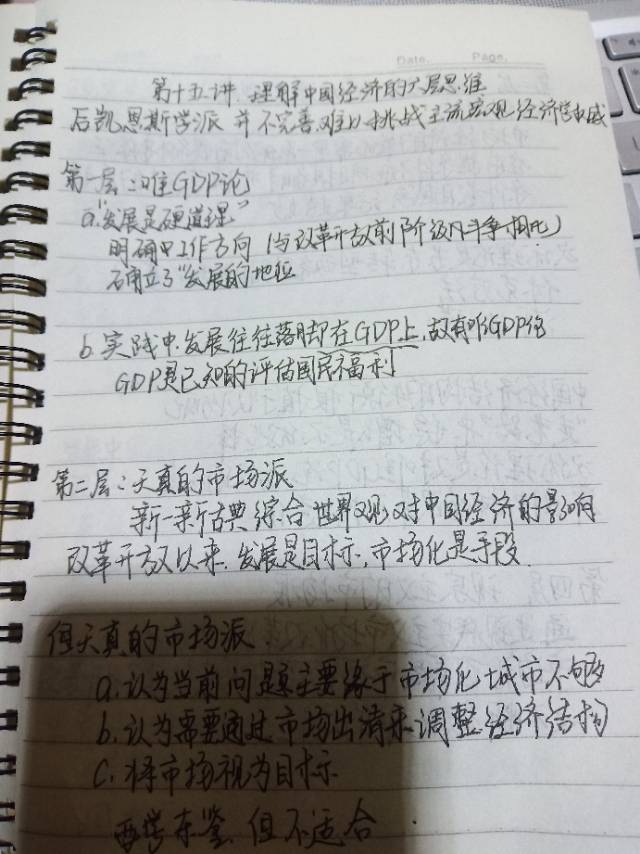 Date. Page.
第十五讲 理解中国经济的六层思维
后凯恩斯学派 并不完善,难以挑战主流宏观经济学权威
第一层:唯GDP论
a."发展是硬道理"
明确中工作方向(与改革开放前阶级斗争相比)
确立了"发展的地位
b.实践中,发展往往落脚在GDP上,故有唯GDP论
GDP是已知的评估国民福利
第二层:天真的市场派
新-新古典综合世界观对中国经济的影响
改革开放以来,发展是目标,市场化是手段.
但天真的市场派:
a.认为当前问题主要缘于市场化、城市不够
b.认为需要通过市场出清来调整经济结构
c.将市场视为目标
但不适合